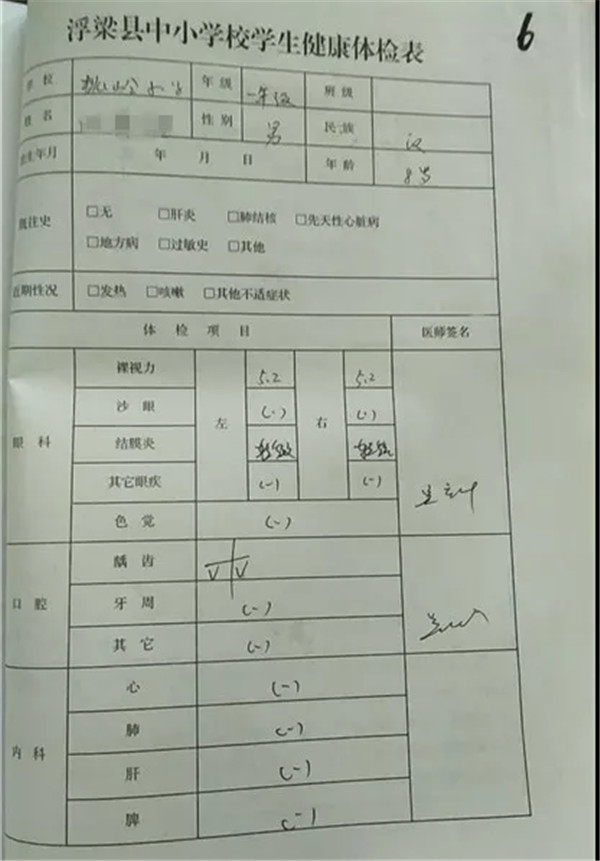 6
浮梁县中小学校学生健康体检表
学校 小学 年级 一年级 班级
姓名 性别 男 民族 汉
出生年月 年 月 日 年龄 8岁
既往史 □无 □肝炎 □肺结核 □先天性心脏病
□地方病 □过敏史 □其他
近期性况 □发热 □咳嗽 □其他不适症状
体检项目 医师签名
眼科 裸视力 左 5.2 右 5.2
沙眼 (-) (-)
结膜炎 轻级 轻级
其它眼疾 (-) (-)
色觉 (-)
口腔 龋齿 V V
牙周 (-)
其它 (-)
内科 心 (-)
肺 (-)
肝 (-)
脾 (-)